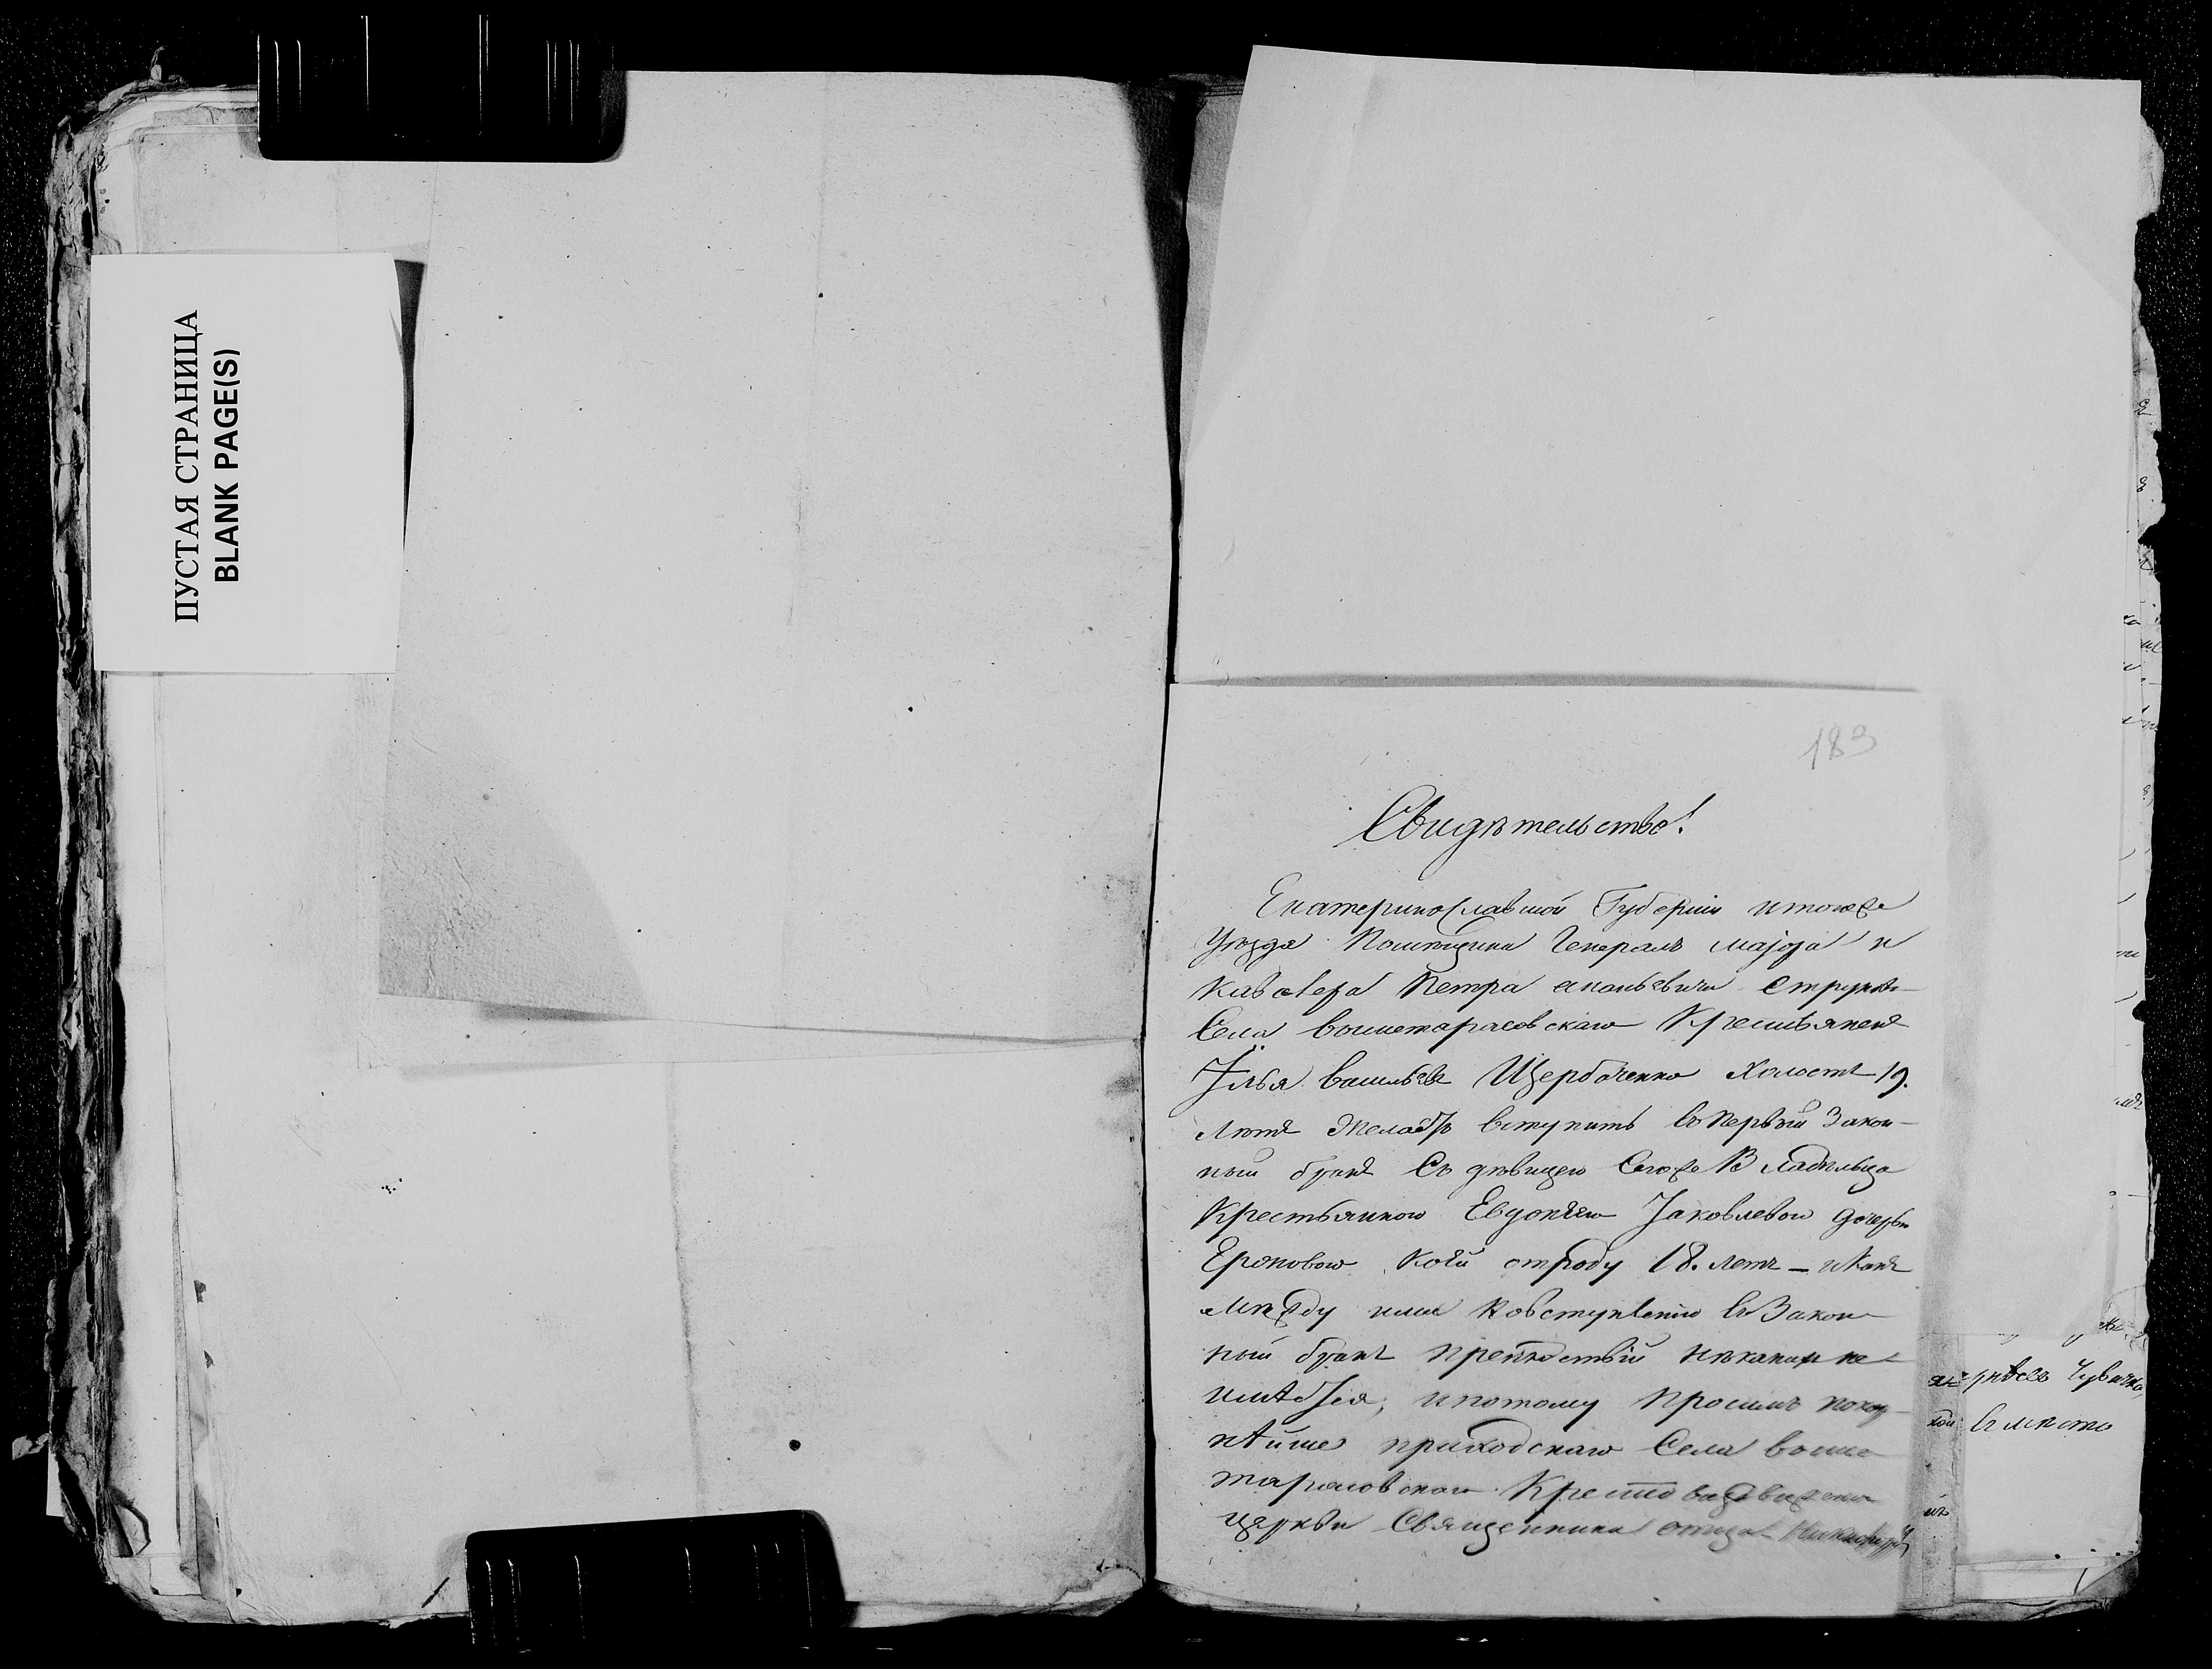 ПУСТАЯ СТРАНИЦА
BLANK PAGE(S)
183
Свидѣтельство!
Екатеринославской Губерніи итогоже
Уѣзда Помѣщика Генералъ маіора и
кавалера Петра ананьевича струкова
Села вошетарасовскаго Крестьянинъ
Илья васильевъ Щербаченко Холостъ 19.
лѣтъ желаетъ вступить въ первый Закон-
ный бракъ Съ дѣвицею Сегоже Владѣльца
Крестьянкою Евдокіею Яковлевою дочерью
кои отроду 18. летъ – и какъ
между ими ковступленію въ Закон-
ный бракъ препятствій никакихъ не-
имѣется; и потому просимъ покор-
нѣйше приходскаго Села воше
тарасовскаго Кресто воздвиженской
церкви Священника отца Никифора
вместо